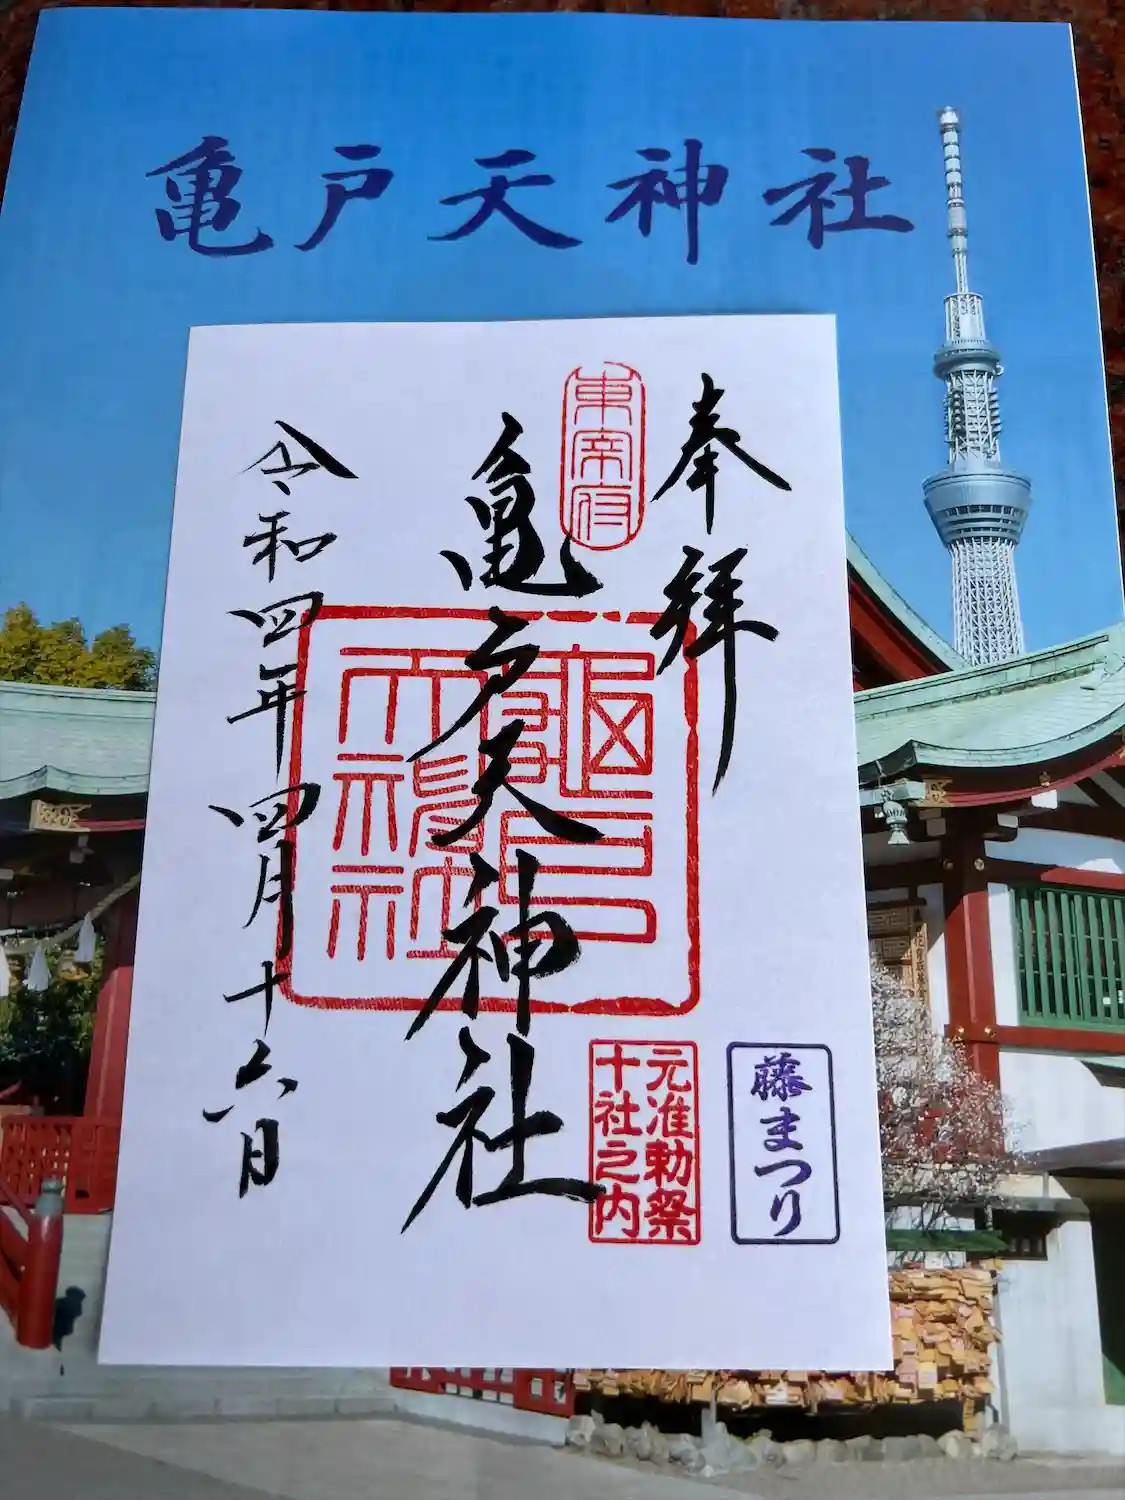 亀戸天神社
奉拝
東宰府
亀戸天神社
令和四年四月十六日
亀戸
天神社
元准勅祭
十社之内
藤まつり